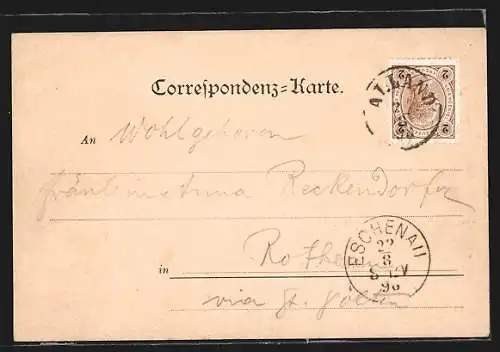 Correspondenz-Karte.
2 2
ALLAND
2 2
An Wohlgeboren
Fräulein Anna Reckendorfer
ESCHENAU
22
8
96
in
via St. Pölten